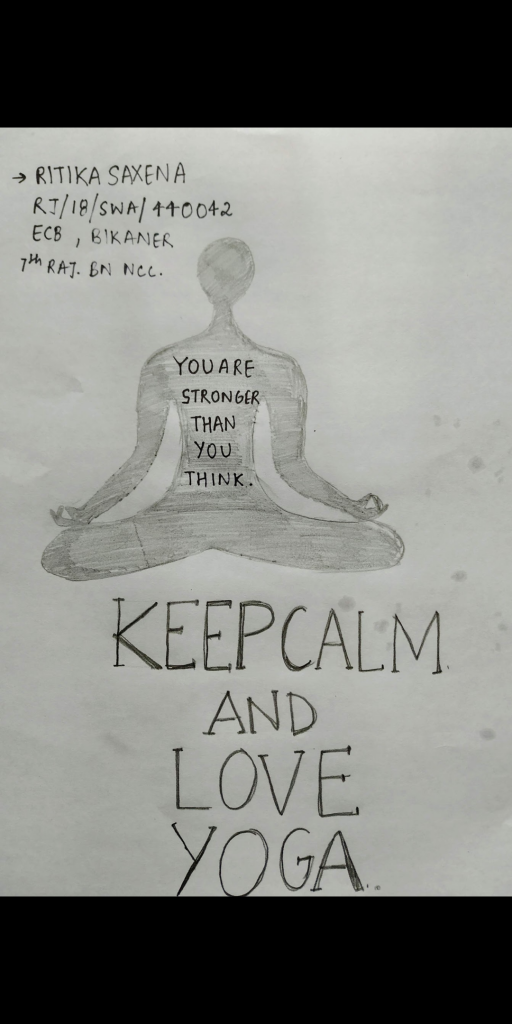 → RITIKA SAXENA
RJ/18/SWA/440042
ECB, BIKANER
7th RAJ. BN NCC.
YOU ARE
STRONGER
THAN
YOU
THINK.
KEEP CALM
AND
LOVE
YOGA.